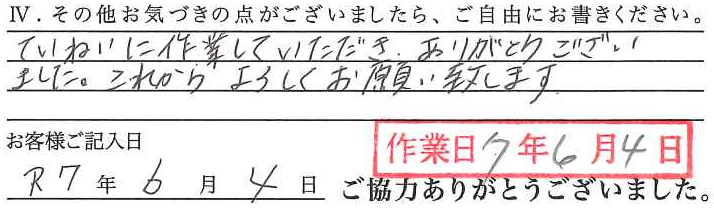 Ⅳ．その他お気づきの点がございましたら、ご自由にお書きください。
ていねいに作業していただき、ありがとうござい
ました。これから よろしくお願い致します
お客様ご記入日
作業日7年6月4日
R7年6月4日
ご協力ありがとうございました。